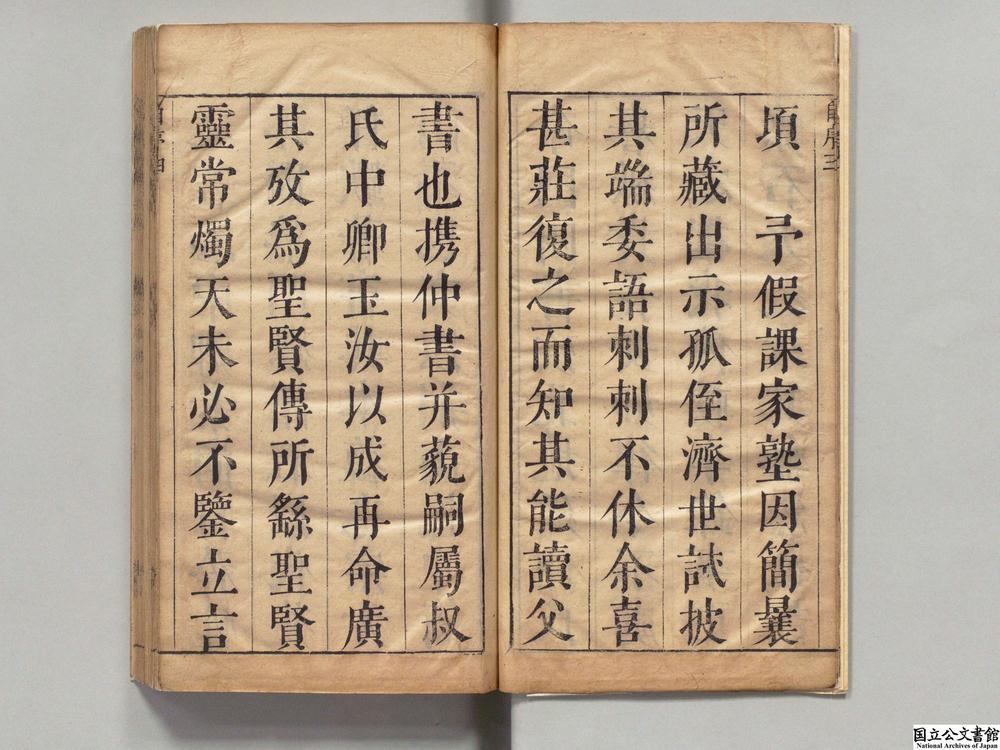 頃　予假課家塾因簡曩
所藏出示孤侄濟世試披
其端委語刺刺不休余喜
甚莊復之而知其能讀父
書也携仲書并藐嗣屬叔
氏中卿玉汝以成再命廣
其攷爲聖賢傳所繇聖賢
靈常燭天未必不鑒立言
国立公文書館
National Archives of Japan